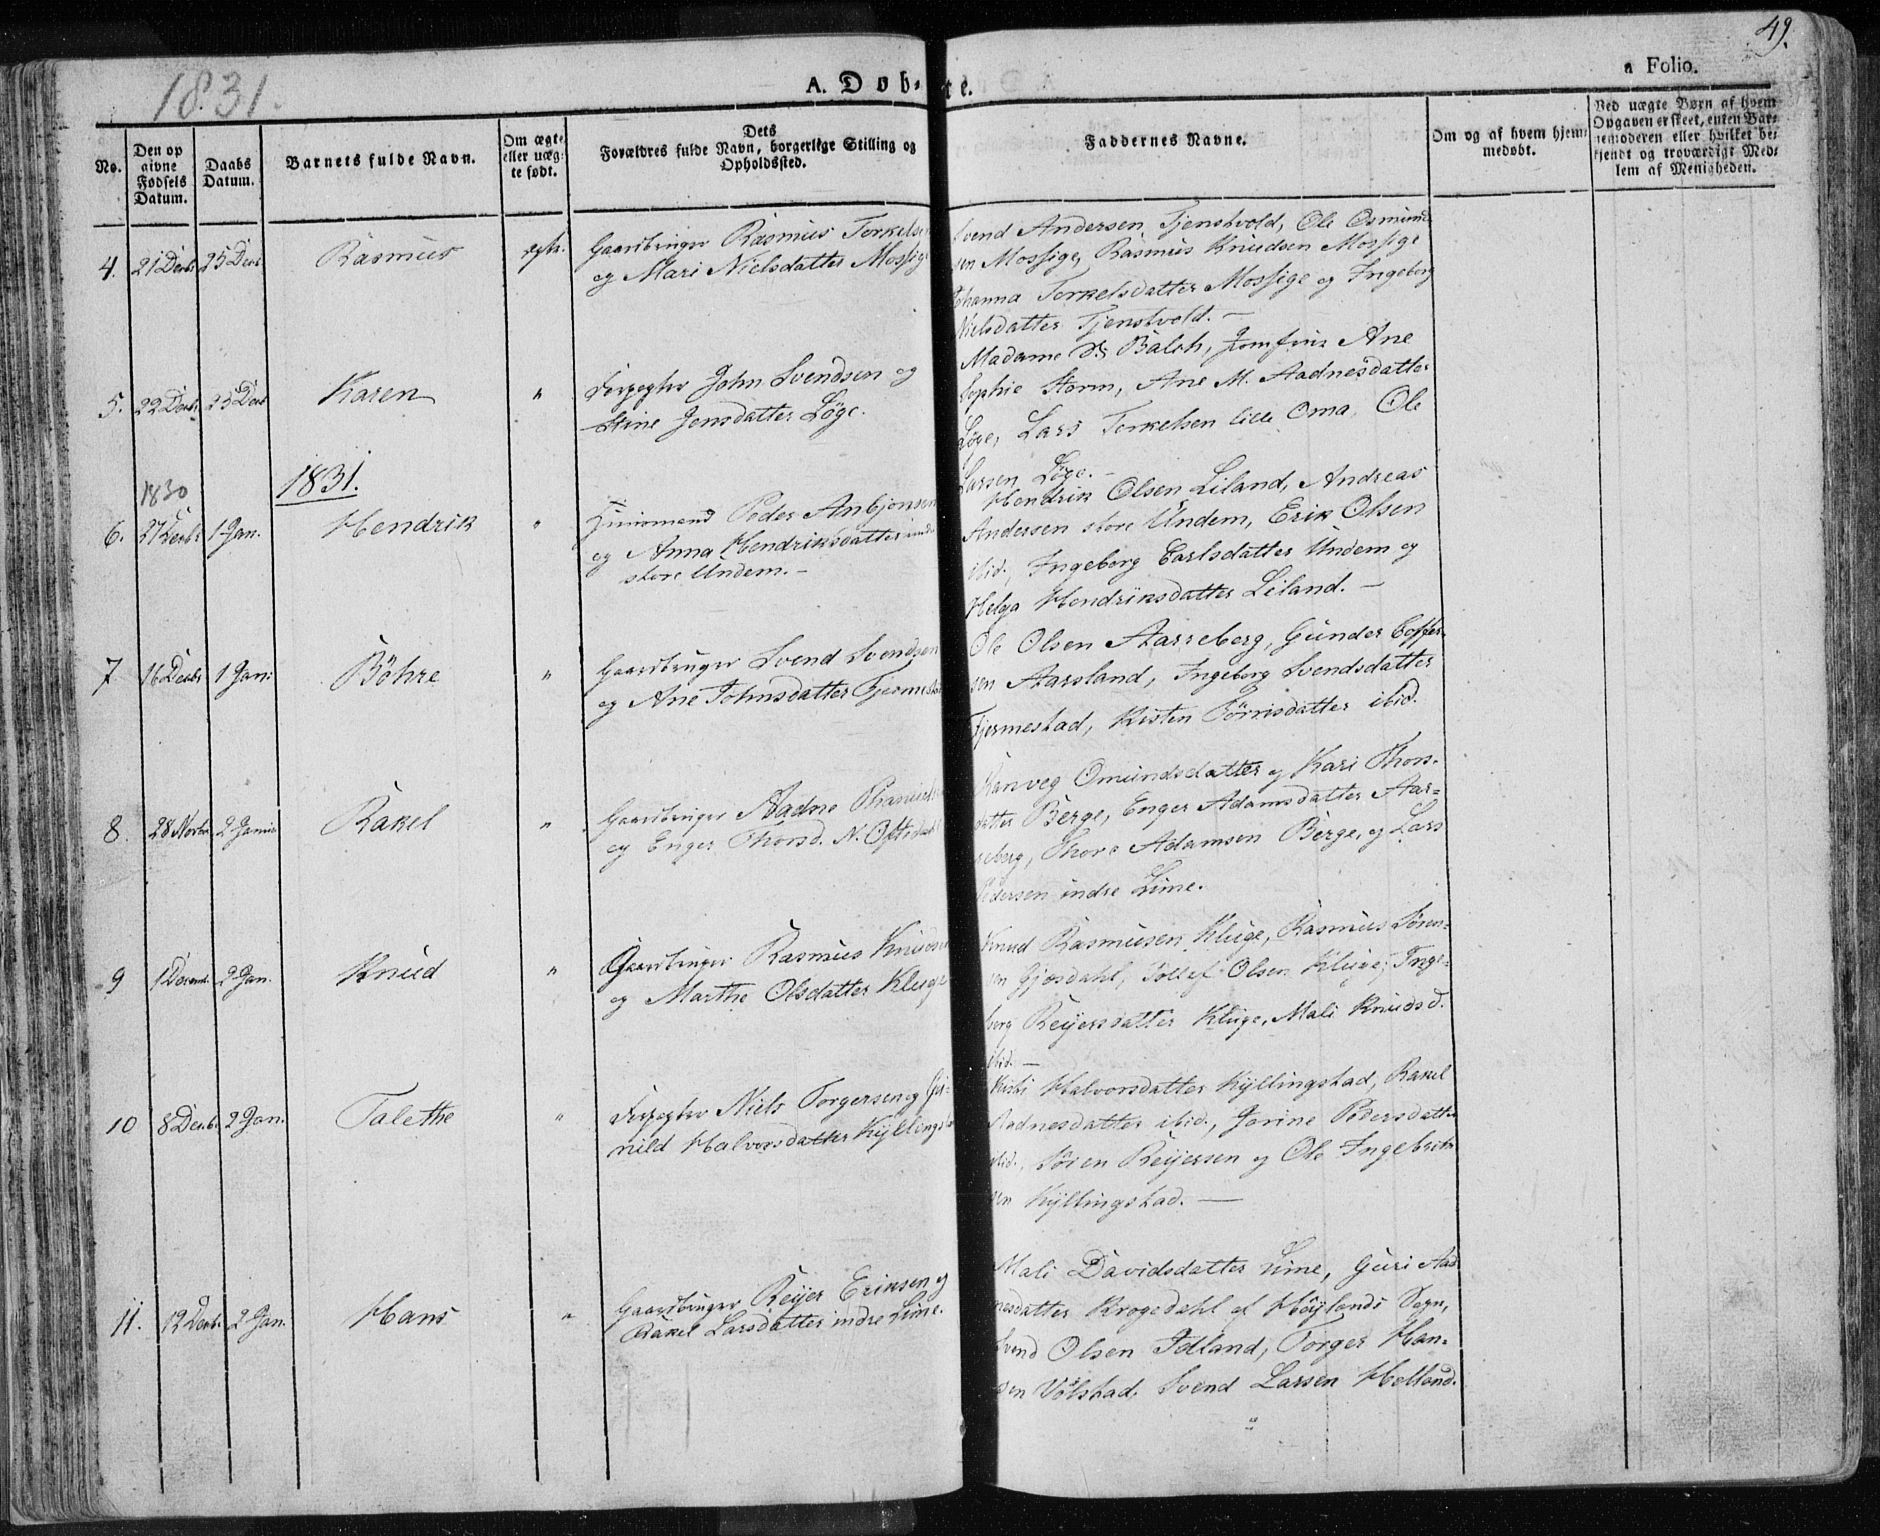 49.
1831.
A. Døb-te.
a Folio.
No.
Den op
givne
Fødsels
Datum.
Daabs
Datum.
Barnets fulde Navn.
Om ægte
eller uæg-
te født.
Dets
Forældres fulde Navn, borgerlige Stilling og
Opholdssted.
Faddernes Navne.
Om og af hvem hjem-
medøbt.
Ved uægte Børn af hvem
Opgaven er skeet, enten Bar-
nemoderen eller hvilket be-
kjendt og troværdigt Med-
lem af Menigheden.
4. 21 Decbr 25 Decbr Rasmus ægte.
Gaardbruger Rasmus Torkels
og Mari Nielsdatter Mossige
Svend Andersen Tjenstvold, Ole Osmund
sen Mossige, Rasmus Knudsen Mossige
Johanna Torkelsdatter Mossige og Ingeborg
Nielsdatter Tjenstvold. —
5. 22 Decbr 25 Decbr Karen "
Forpagter John Svendsen og
Stine Jensdatter Løge.
Madame Balch, Jomfrue Ane
Sophie Storm, Ane M. Aadnesdatter
Løge, Lars Torkelsen lille Oma, Ole
Larsen Løge. —
1830
1831.
6. 27 Decbr 1 Jan. Hendrik "
Huusmand Peder Anbjønsen
og Anna Hendriksdatter under
store Undem. —
Hendrik Olsen Liland, Andreas
Andersen store Undem, Erik Olsen
ibid., Ingeborg Carlsdatter Undem og
Helga Hendriksdatter Liland. —
7 16 Decbr 1 Jan: Böhre "
Gaardbruger Svend Svendsen
og Ane Johnsdatter Fjermestad
Ole Olsen Aarreberg, Gunder
sen Aarsland, Ingeborg Svendsdatter
Fjermestad, Kisten Börrisdatter ibid.
8. 28 Novbr 2 Januar Rakel "
Gaardbruger Aadne
og Enger Thorsd. N. Oftedahl
Ranveg Omundsdatter og Kari Thors-
datter Berge, Enger Adamsdatter Aar-
reberg, Thore Adamsen Berge, og Lars
Pedersen indre Lime.
9 1 Decemb. 2 Jan. Knud "
Gaardbruger Rasmus Knudsen
og Marthe Olsdatter Kluge
Knud Rasmusen Kluge, Rasmus Sören-
sen Gjosdahl, Tollef Olsen Kluge, Inge-
borg Reijersdatter Kluge, Mali Knudsd.
ibid. —
10 8 Decbr 2 Jan. Talethe "
Forpagter Niels Torgersen og Gu-
nild Halvorsdatter Kyllingstad
Kisti Halvorsdatter Kyllingstad, Rakel
Aadnesdatter ibid., Jorine Pedersdatter
ibid., Sören Reijersen og Ole Ingebrit-
sen Kyllingstad. —
11. 12 Decbr. 2 Jan. Hans "
Gaardbruger Reijer Eriksen og
Rakel Larsdatter indre Lime.
Mali Davidsdatter Lime, Guri Aad
nesdatter Krogedahl af Höylands Sogn,
Svend Olsen Idland, Torger Han-
sen Völstad, Svend Larsen Helland.